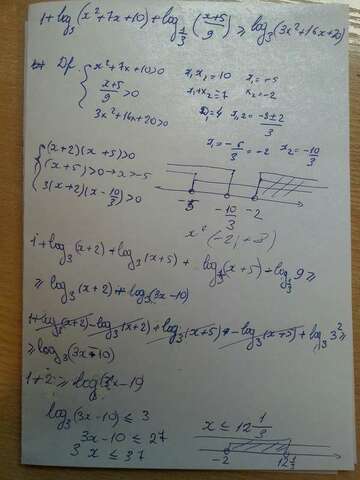 1+log₃(x²+7x+10)+log_{1/3}((x+5)/9) ≥ log₃(3x²+16x+20)
Df. { x²+7x+10>0 x₁x₂=10 x₁=-5
(x+5)/9 >0 x₁+x₂=7 x₂=-2
3x²+16x+20>0 D₁=4 x₁,₂= (-8±2)/3
x₁=-6/3=-2 x₂=-10/3
{ (x+2)(x+5)>0
(x+5)>0 → x>-5
3(x+2)(x-10/3)>0
-5 -10/3 -2
1+log₃(x+2)+log₃(x+5)+ log_{1/3}(x+5)-log_{1/3}9 ≥
≥ log₃(x+2)+log₃(3x-10)
1+log₃(x+2)-log₃(x+2)+log₃(x+5)-log₃(x+5)+log₃3² ≥
≥log₃(3x-10)
1+2 ≥ log₃(3x-10)
log₃(3x-10) ≤ 3 x ≤ 12 1/3
3x-10 ≤ 27
3 x ≤ 37 -2 12 1/3